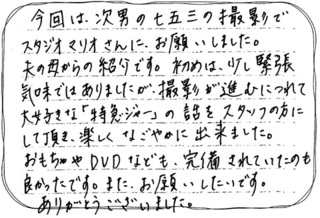 今回は、次男の七五三の撮影で
スタジオマリオさんに、お願いしました。
夫の母からの紹介です。初めは、少し緊張
気味ではありましたが、撮影が進むにつれて
大好きな「特急ジャー」の話をスタッフの方に
して頂き、楽しくなごやかに出来ました。
おもちゃやDVDなども、完備されていたのも
良かったです。また、お願いしたいです。
ありがとうございました。